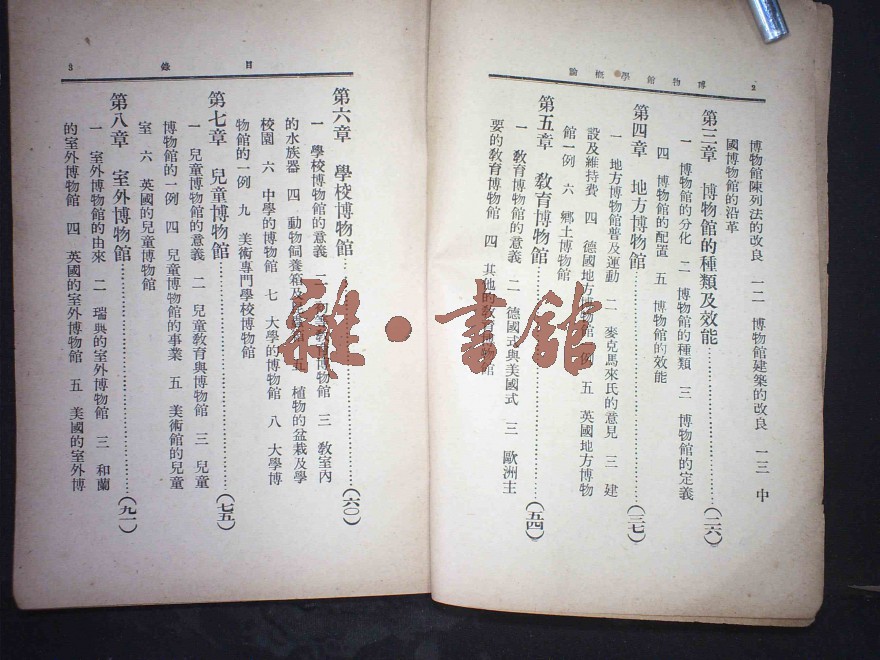 論概學館物博 2
博物館陳列法的改良 一二 博物館建築的改良 一三 中
國博物館的沿革
第三章 博物館的種類及效能……(二六)
一 博物館的分化 二 博物館的種類 三 博物館的定義
四 博物館的配置 五 博物館的效能
第四章 地方博物館……(三七)
一 地方博物館普及運動 二 麥克馬來氏的意見 三 建
設及維持費 四 德國地方博物館一例 五 英國地方博物
館一例 六 鄉土博物館
第五章 教育博物館……(五四)
一 教育博物館的意義 二 德國式與美國式 三 歐洲主
要的教育博物館 四 其他的教育博物館
3 錄目
第六章 學校博物館……(六〇)
一 學校博物館的意義 二 初等教育博物館 三 教室內
的水族器 四 動物飼養箱及 五 植物的盆栽及學
校園 六 中學的博物館 七 大學的博物館 八 大學博
物館的一例 九 美術專門學校博物館
第七章 兒童博物館……(七五)
一 兒童博物館的意義 二 兒童教育與博物館 三 兒童
博物館的一例 四 兒童博物館的事業 五 美術館的兒童
室 六 英國的兒童博物館
第八章 室外博物館……(九一)
一 室外博物館的由來 二 瑞典的室外博物館 三 和蘭
的室外博物館 四 英國的室外博物館 五 美國的室外博
雜·書館